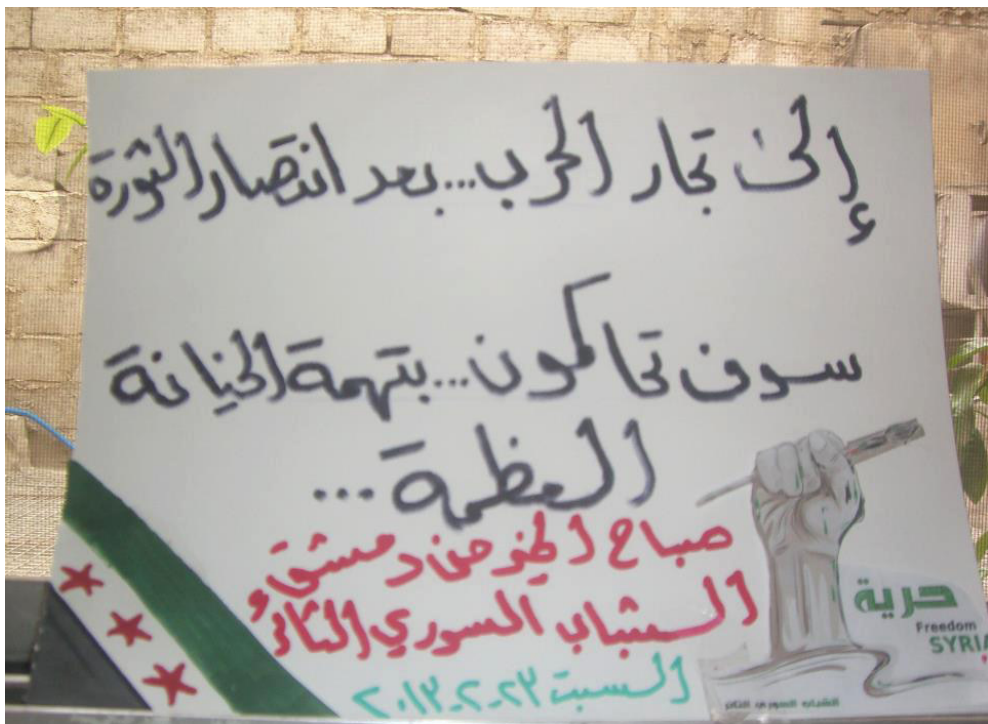 إلى تجار الحرب...بعد انتصار الثورة
سوف تحاكمون...بتهمة الخيانة
العظمة...
صباح الخير من دمشق
الشباب السوري الثائر
السبت ٢٣-٢-٢٠١٣
حرية
Freedom
SYRIA
الشباب السوري الثائر